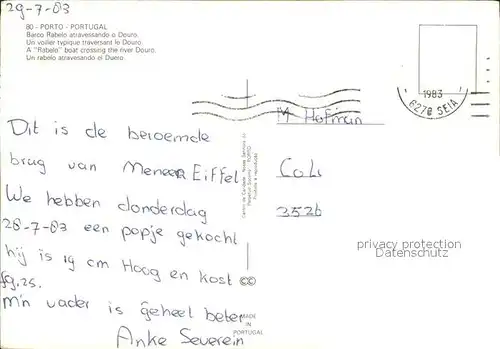 29-7-83
80 - PORTO - PORTUGAL
Barco Rabelo atravessando o Douro.
Un voilier typique traversant le Douro.
A "Rabelo" boat crossing the river Douro.
Un rabelo atravesando el Duero.
1983
6270 SEIA
M Hofman
Dit is de beroemde
brug van Meneer Eiffel
We hebben donderdag
28-7-83 een popje gekocht
hij is 19 cm Hoog en kost
fg.25.
m'n vader is geheel beter
Anke Severein
3526
MADE
IN
PORTUGAL
privacy protection
Datenschutz